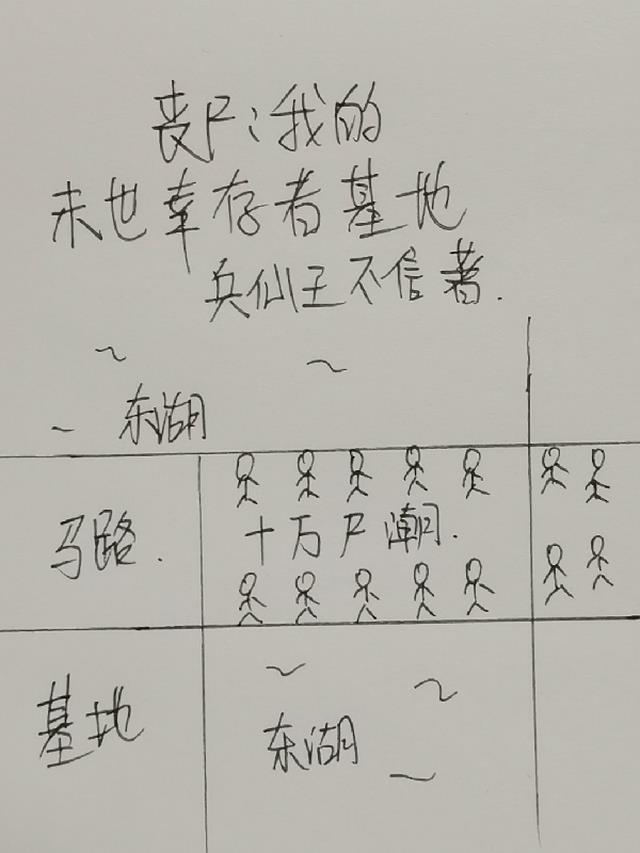 丧尸:我的
末世幸存者基地
兵仙王不信著.
东湖
马路.
十万尸潮.
基地
东湖